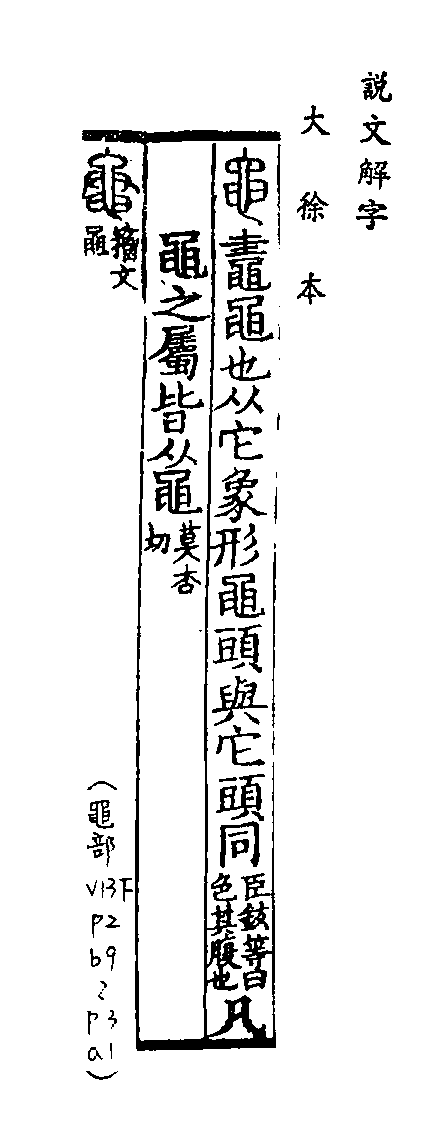 説文解字
大徐本
黽 鼃黽也从它象形黽頭與它頭同 臣鉉等曰
色其腹也 凡
黽之屬皆从黽 莫杏
切
黽 籒文
黽
(黽部
V13下
P2
b9
~
P3
a1)